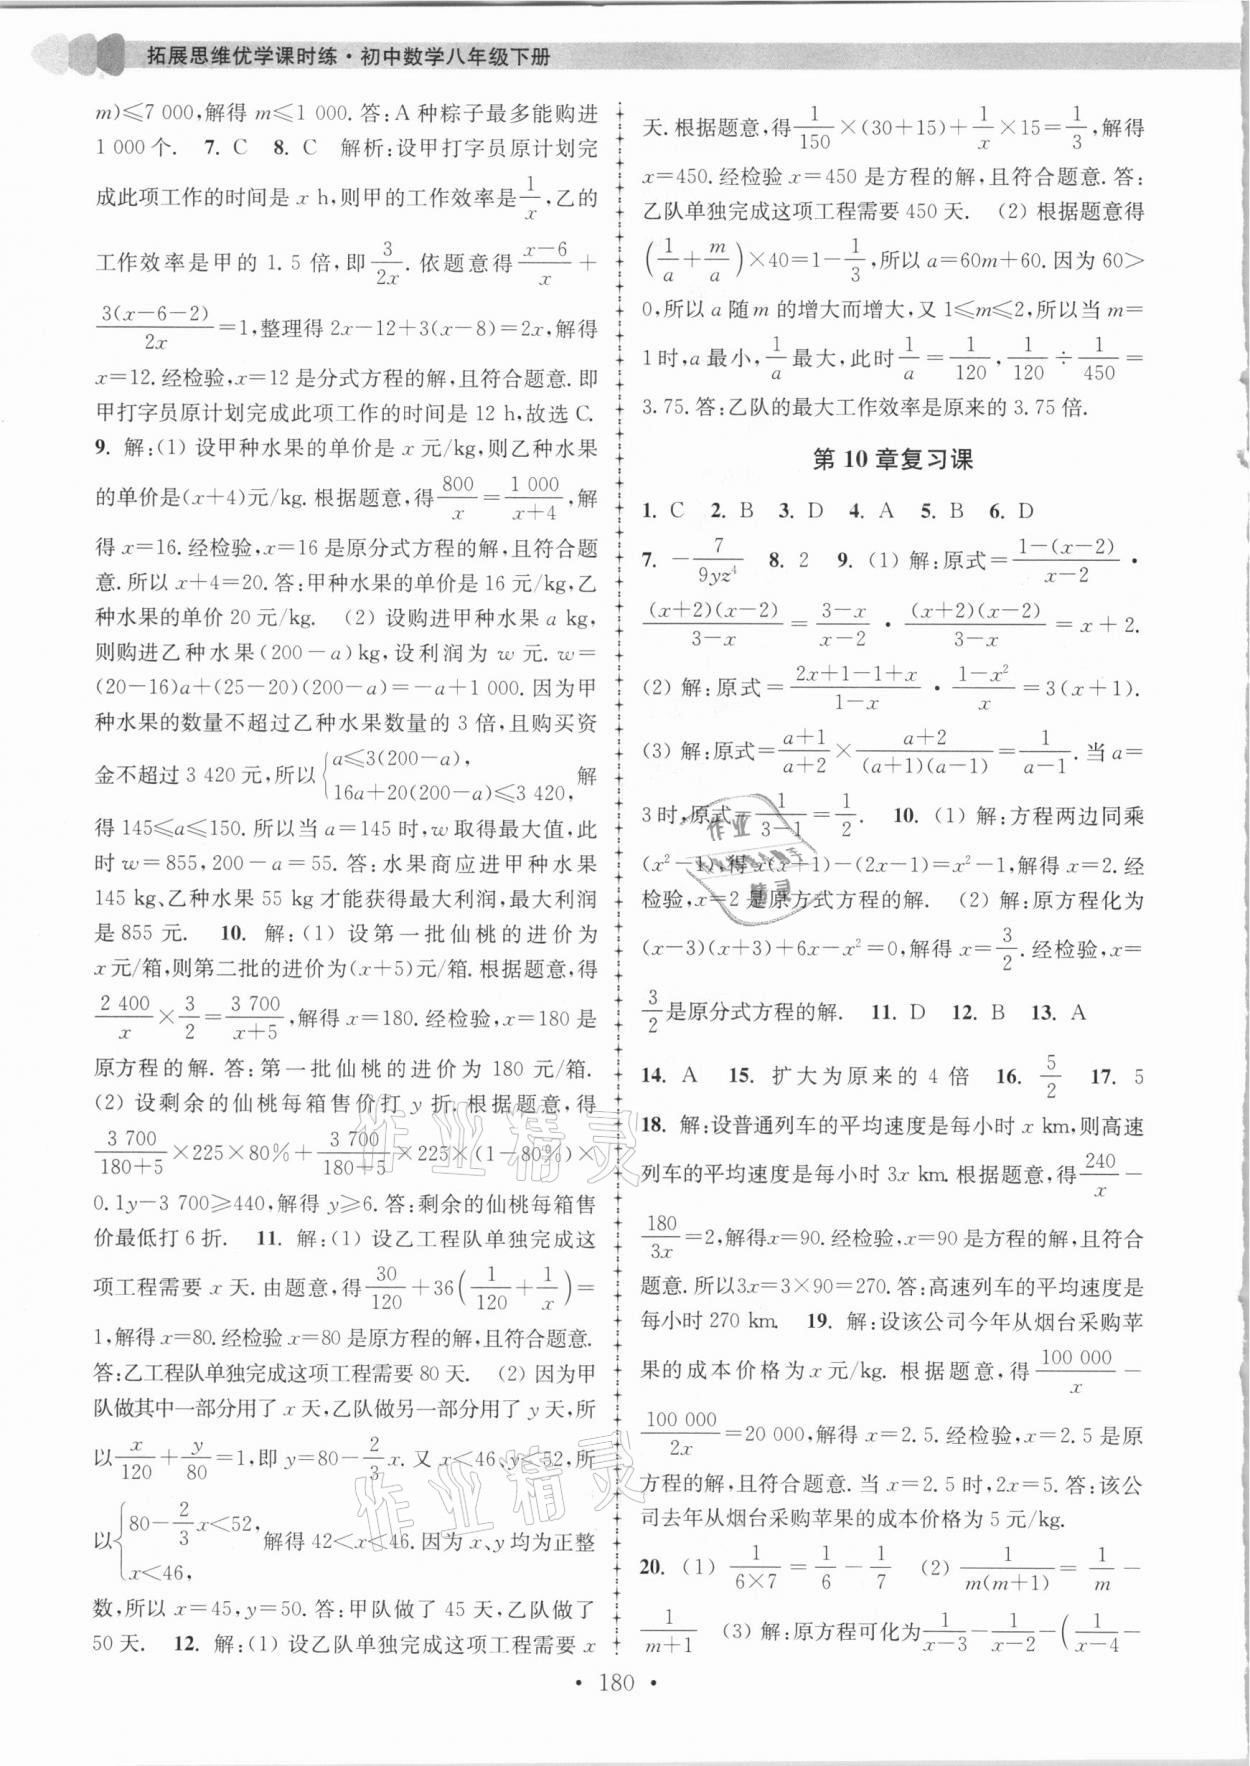 拓展思维优学课时练·初中数学八年级下册
m)≤7 000,解得 m≤1 000. 答:A 种粽子最多能购进
1 000 个. 7. C 8. C 解析:设甲打字员原计划完
成此项工作的时间是 x h,则甲的工作效率是1/x,乙的
工作效率是甲的 1. 5 倍,即 3/2x. 依题意得 (x-6)/x +
3(x-6-2)/2x =1,整理得 2x-12+3(x-8)=2x,解得
x=12. 经检验,x=12 是分式方程的解,且符合题意. 即
甲打字员原计划完成此项工作的时间是 12 h,故选 C.
9. 解:(1) 设甲种水果的单价是 x 元/kg,则乙种水果
的单价是(x+4)元/kg. 根据题意,得 800/x = 1 000/(x+4),解
得 x=16. 经检验,x=16 是原分式方程的解,且符合题
意. 所以 x+4=20. 答:甲种水果的单价是 16 元/kg,乙
种水果的单价 20 元/kg. (2) 设购进甲种水果 a kg,
则购进乙种水果(200-a)kg,设利润为 w 元. w=
(20-16)a+(25-20)(200-a)=-a+1 000. 因为甲
种水果的数量不超过乙种水果数量的 3 倍,且购买资
金不超过 3 420 元,所以{a≤3(200-a), 16a+20(200-a)≤3 420, 解
得 145≤a≤150. 所以当 a=145 时,w 取得最大值,此
时 w=855,200-a=55. 答:水果商应进甲种水果
145 kg、乙种水果 55 kg 才能获得最大利润,最大利润
是 855 元. 10. 解:(1) 设第一批仙桃的进价为
x 元/箱,则第二批的进价为(x+5)元/箱. 根据题意,得
2 400/x × 3/2 = 3 700/(x+5),解得 x=180. 经检验,x=180 是
原方程的解. 答:第一批仙桃的进价为 180 元/箱.
(2) 设剩余的仙桃每箱售价打 y 折. 根据题意,得
3 700/(180+5) ×225×80%+ 3 700/(180+5) ×225×(1-80%)×
0. 1y-3 700≥440,解得 y≥6. 答:剩余的仙桃每箱售
价最低打 6 折. 11. 解:(1) 设乙工程队单独完成这
项工程需要 x 天. 由题意,得 30/120 +36(1/120 + 1/x)=
1,解得 x=80. 经检验 x=80 是原方程的解,且符合题意.
答:乙工程队单独完成这项工程需要 80 天. (2) 因为甲
队做其中一部分用了 x 天,乙队做另一部分用了 y 天,所
以 x/120 + y/80 =1,即 y=80- 2/3 x. 又 x<46、y<52,所
以{80- 2/3 x<52, x<46, 解得 42<x<46. 因为 x、y 均为正整
数,所以 x=45,y=50. 答:甲队做了 45 天,乙队做了
50 天. 12. 解:(1) 设乙队单独完成这项工程需要 x
天. 根据题意,得 1/150 ×(30+15)+ 1/x ×15= 1/3,解得
x=450. 经检验 x=450 是方程的解,且符合题意. 答:
乙队单独完成这项工程需要 450 天. (2) 根据题意得
(1/a + m/a)×40=1- 1/3,所以 a=60m+60. 因为 60>
0,所以 a 随 m 的增大而增大,又 1≤m≤2,所以当 m=
1 时,a 最小,1/a 最大,此时 1/a = 1/120, 1/120 ÷ 1/450 =
3. 75. 答:乙队的最大工作效率是原来的 3. 75 倍.
第 10 章复习课
1. C 2. B 3. D 4. A 5. B 6. D
7. - 7/9yz⁴ 8. 2 9. (1) 解:原式= (1-(x-2))/(x-2) ·
(x+2)(x-2)/(3-x) = (3-x)/(x-2) · (x+2)(x-2)/(3-x) =x+2.
(2) 解:原式= (2x+1-1+x)/(1-x) · (1-x²)/x =3(x+1).
(3) 解:原式= (a+1)/(a+2) × (a+2)/((a+1)(a-1)) = 1/(a-1). 当 a=
3 时,原式= 1/(3-1) = 1/2. 10. (1) 解:方程两边同乘
(x²-1),得 x(x+1)-(2x-1)=x²-1,解得 x=2. 经
检验,x=2 是原方式方程的解. (2) 解:原方程化为
(x-3)(x+3)+6x-x²=0,解得 x= 3/2. 经检验,x=
3/2 是原分式方程的解. 11. D 12. B 13. A
14. A 15. 扩大为原来的 4 倍 16. 5/2 17. 5
18. 解:设普通列车的平均速度是每小时 x km,则高速
列车的平均速度是每小时 3x km. 根据题意,得 240/x -
180/3x =2,解得x=90. 经检验,x=90 是方程的解,且符合
题意. 所以3x=3×90=270. 答:高速列车的平均速度是
每小时 270 km. 19. 解:设该公司今年从烟台采购苹
果的成本价格为 x 元/kg. 根据题意,得 100 000/x -
100 000/2x =20 000,解得 x=2. 5. 经检验,x=2. 5 是原
方程的解,且符合题意. 当 x=2. 5 时,2x=5. 答:该公
司去年从烟台采购苹果的成本价格为 5 元/kg.
20. (1) 1/(6×7) = 1/6 - 1/7 (2) 1/(m(m+1)) = 1/m -
1/(m+1) (3) 解:原方程可化为 1/(x-3) - 1/(x-2) -(1/(x-4) -
· 180 ·
作业精灵
作业精灵